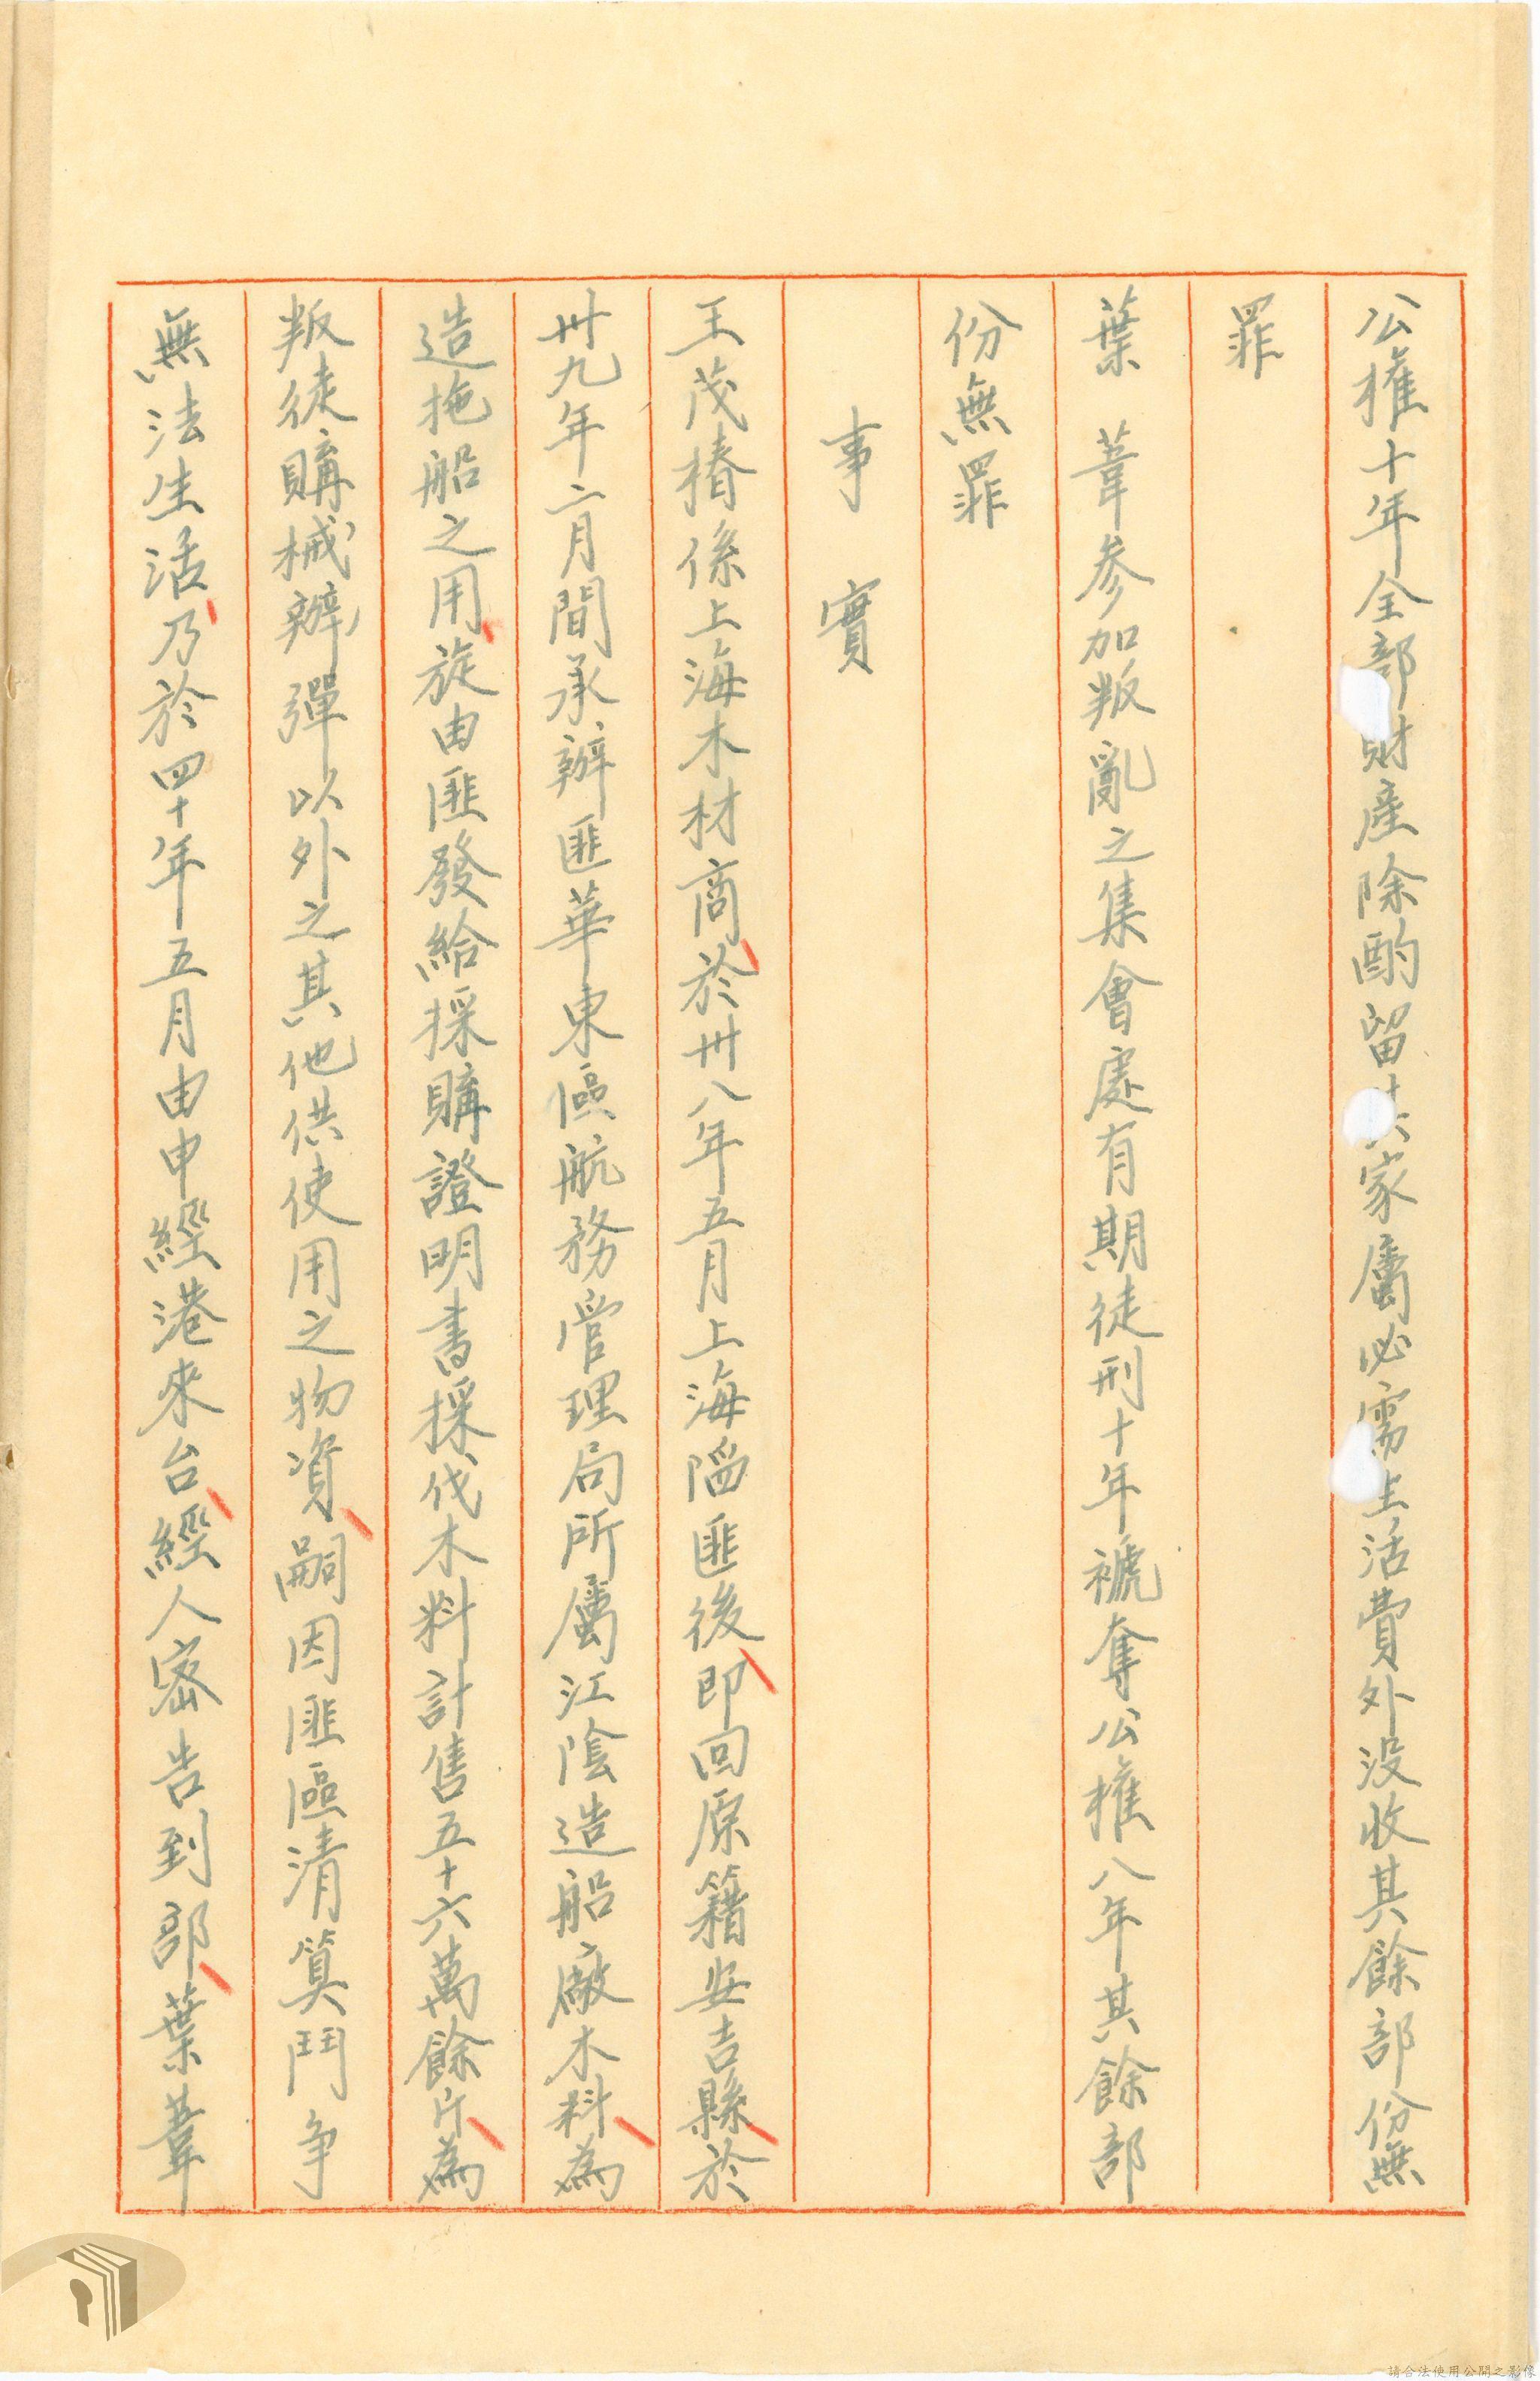 公權十年全部財產除酌留其家屬必需生活費外沒收其餘部份無
罪
葉　葦參加叛亂之集會處有期徒刑十年褫奪公權八年其餘部
份無罪
事　實
王茂椿係上海木材商於卅八年五月上海陷匪後即回原籍安吉縣於
卅九年二月間承辦匪華東區航務管理局所屬江陰造船廠木料為
造拖船之用旋由匪發給採購證明書採伐木料計售五十六萬餘斤為
叛徒購械辦彈以外之其他供使用之物資嗣因匪區清算鬥爭
無法生活乃於四十年五月由申經港來台經人密告到部葉葦
請合法使用公開之影像